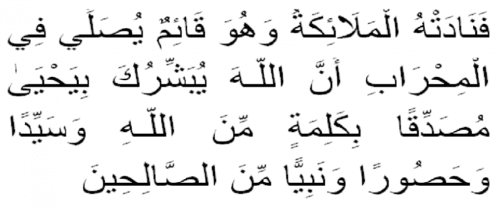 فَنَادَتْهُ الْمَلَائِكَةُ وَهُوَ قَائِمٌ يُصَلِّي فِي
الْمِحْرَابِ أَنَّ اللَّـهَ يُبَشِّرُكَ بِيَحْيَىٰ
مُصَدِّقًا بِكَلِمَةٍ مِّنَ اللَّـهِ وَسَيِّدًا
وَحَصُورًا وَنَبِيًّا مِّنَ الصَّالِحِينَ